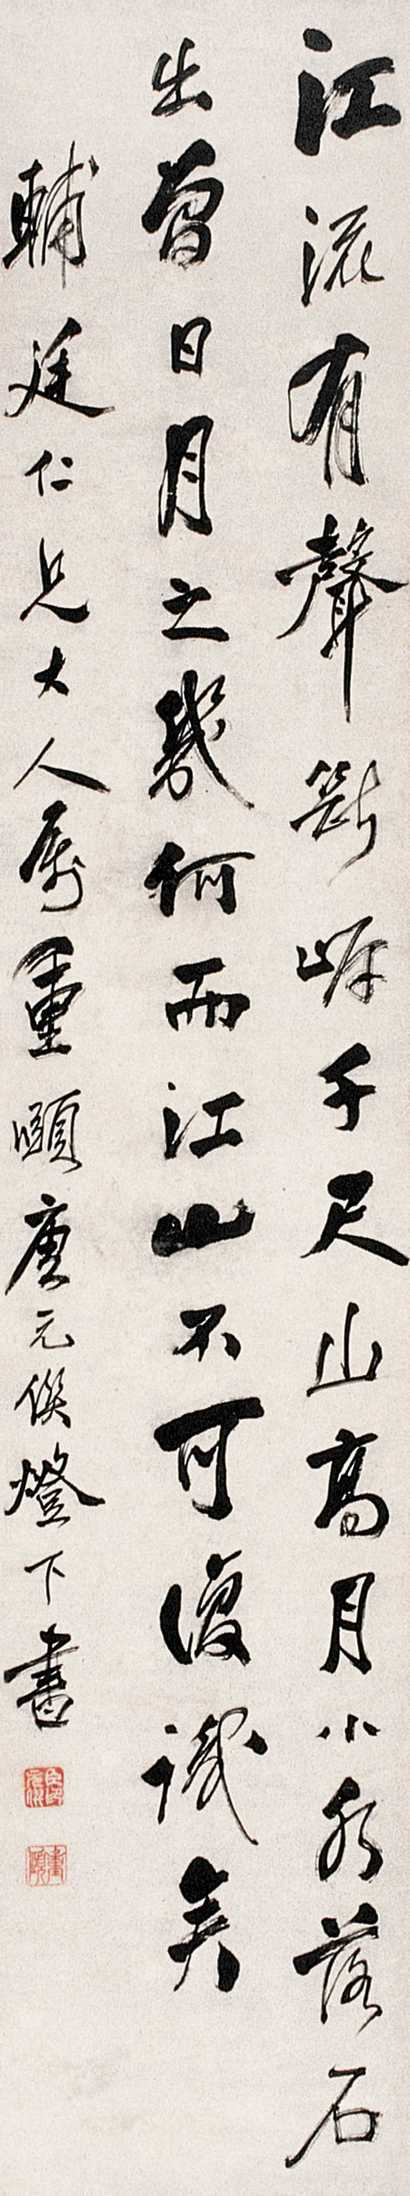 江流有聲斷岸千尺山高月小水落石
出曾日月之幾何而江山不可復識矣
輔廷仁兄大人屬重頤唐元俊燈下書